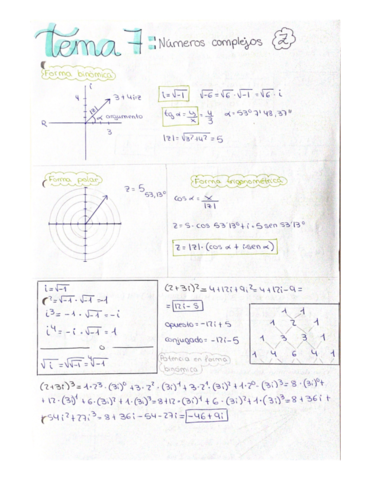 Tema 7: Números complejos 2
Forma binómica
i
3+4i=z
|z|
α argumento
R
3
i=√-1 √-6=√6·√-1=√6·i
tg α = y/x = 4/3 α=53º 7' 48,37"
|z|=√3²+4²=5
Forma polar
z=5 53,13º
Forma trigonométrica
cos α = x/|z|
z=5·cos 53'13º+i·5sen 53'13º
z=|z|·(cos α + i sen α)
i=√-1
i²=√-1·√-1=1
i³=-1·√-1=-i
i⁴=-i·√-1=1
√i=√√-1=⁴√-1
(2+3i)²=4+12i+9i²=4+12i-9=
=12i-5
opuesto=-12i+5
conjugado=-12i-5
Potencia en forma
binómica
1
1 2 1
1 3 3 1
1 4 6 4 1
(2+3i)³=1·2³·(3i)⁰+3·2²·(3i)¹+3·2¹·(3i)²+1·2⁰·(3i)³=8·(3i)⁰+
+12·(3i)¹+6·(3i)²+1·(3i)³=8+12·(3i)¹+6·(3i)²+1·(3i)³=8+36i+
+54i²+27i³=8+36i-54-27i=-46+9i